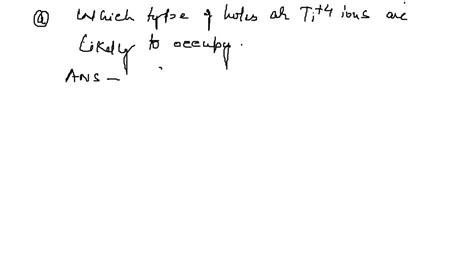 Q Which type of holes ar Ti+4 ions are
likely to occupy.
Ans –